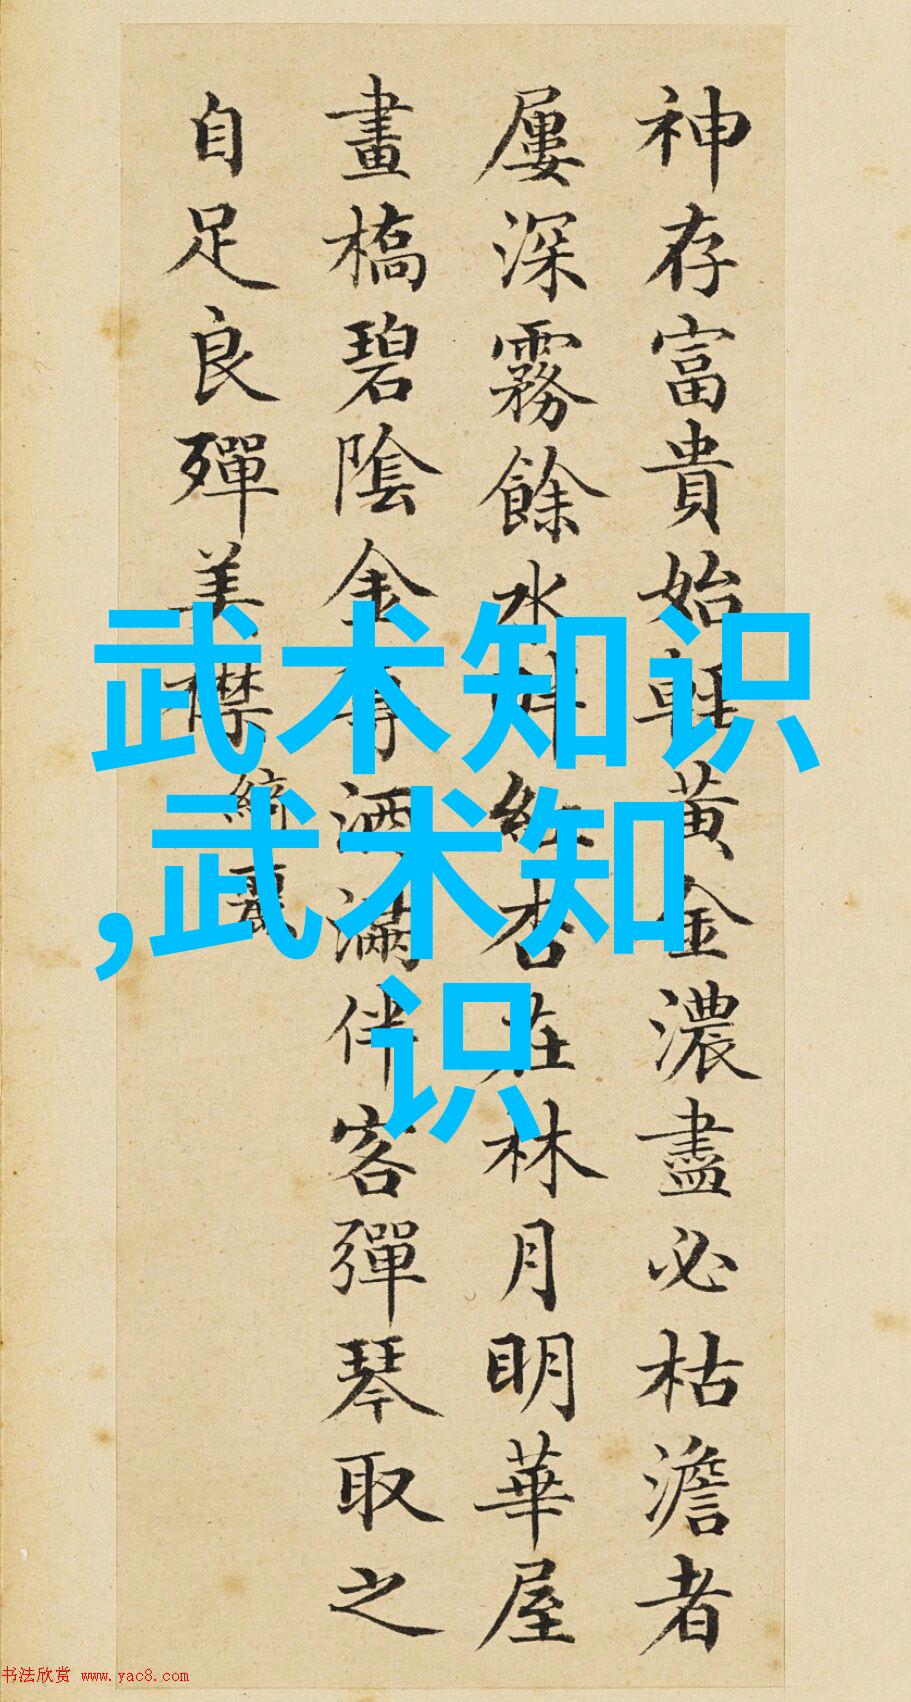 神存富貴始輕黃金濃盡必枯澹者
屢深霧餘水畔紅杏在林月明華屋
畫橋碧陰金尊酒滿伴客彈琴取之
自足良殫美襟
綺麗
武术知识
,武术知
识
书法欣赏 www.yac8.com